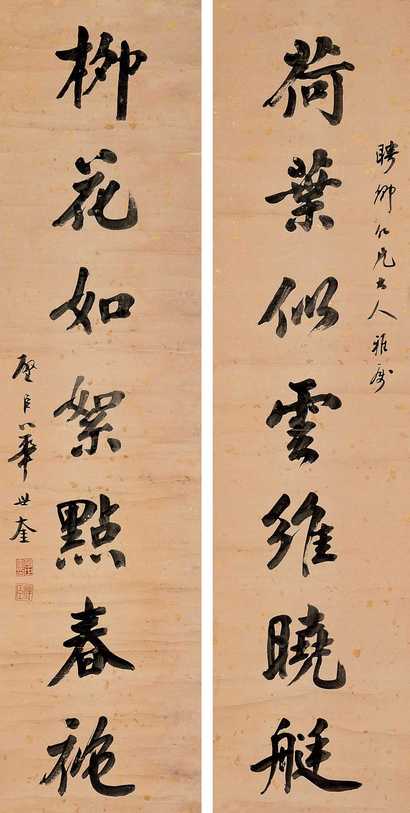 聘卿仁兄大人雅属
荷葉似雲維曉艇
柳花如絮點春袍
啓臣華世奎